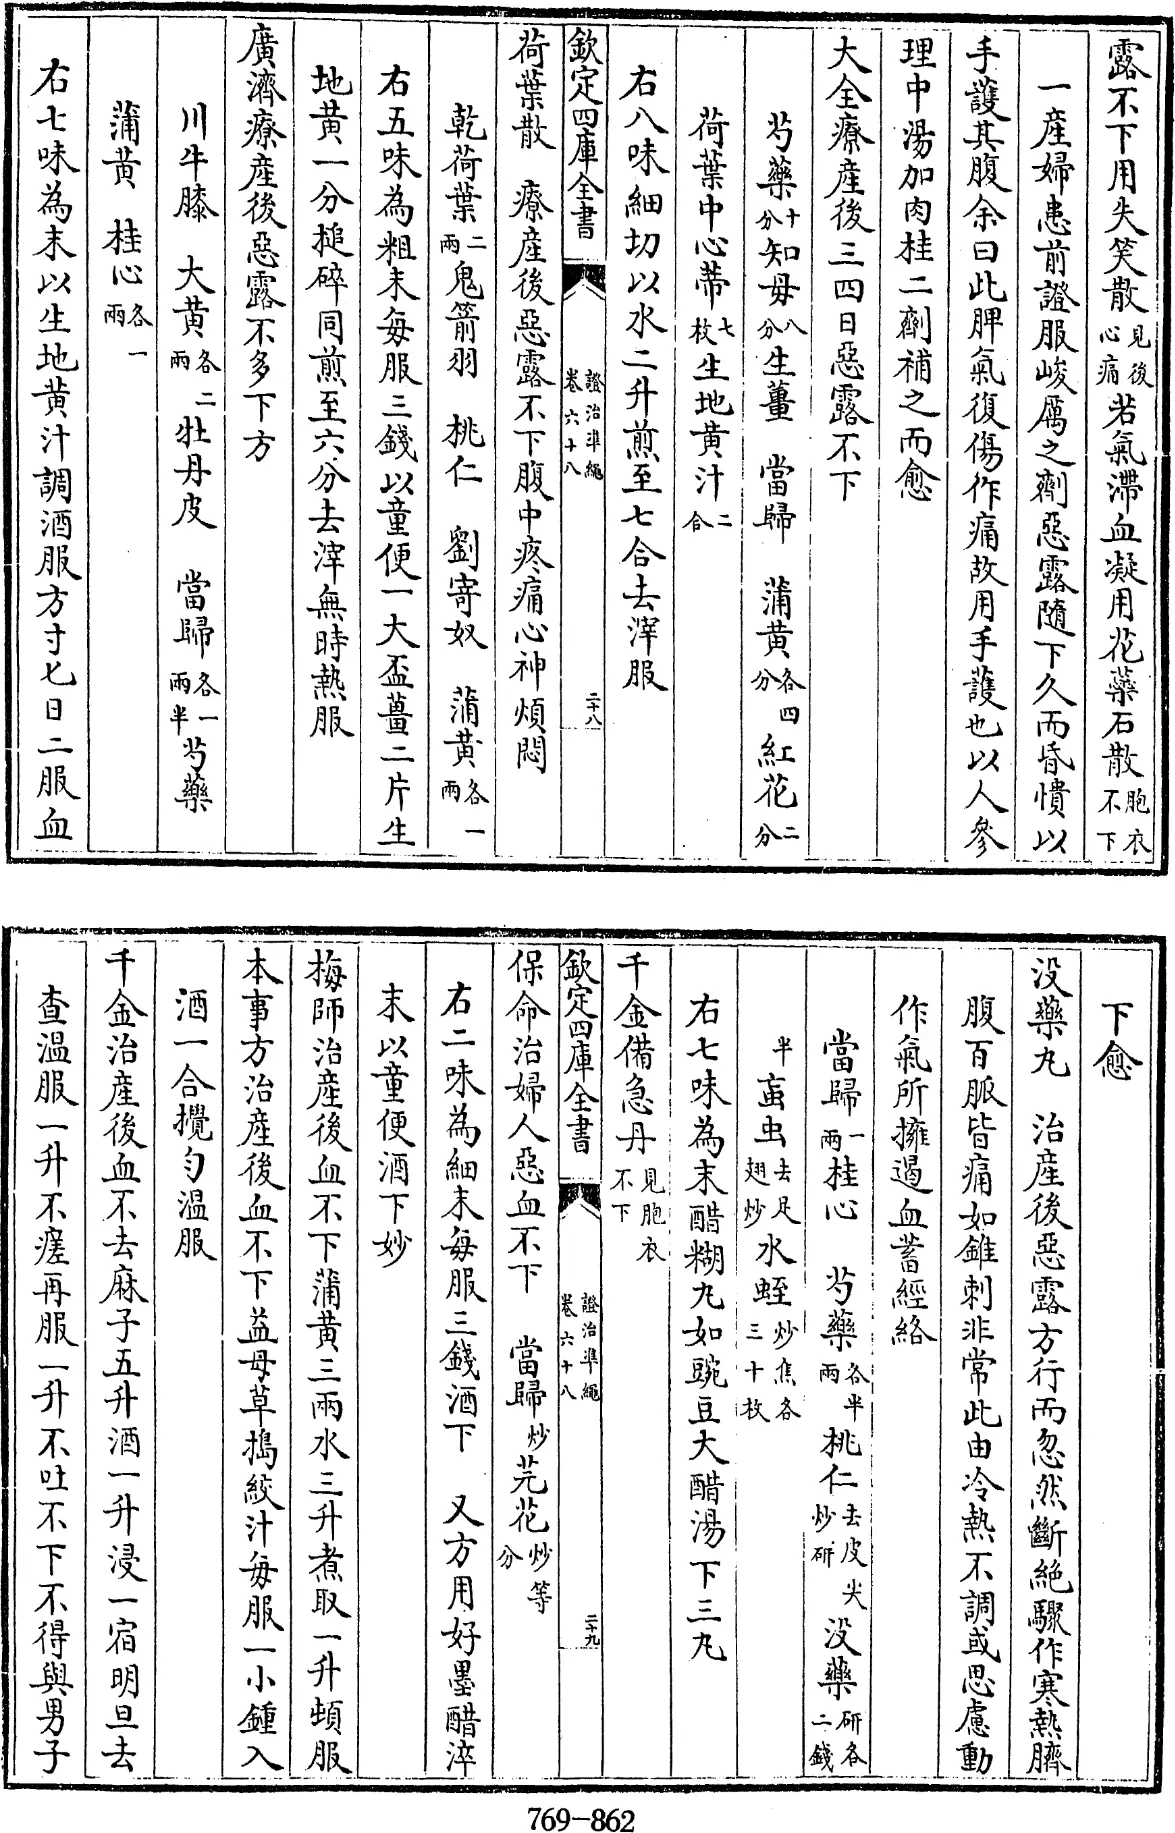 露不下用失笑散見後心痛若氣滯血凝用花蘂石散胞衣不下
一産婦患前證服峻厲之劑惡露隨下久而昏憒以
手護其腹余曰此脾氣復傷作痛故用手護也以人參
理中湯加肉桂二劑補之而愈
大全療産後三四日惡露不下
芍藥十分知母八分生薑 當歸 蒲黄各四分紅花二分
荷葉中心蒂七枚生地黄汁二合
右八味細切以水二升煎至七合去滓服
欽定四庫全書 證治準繩卷六十八 二十八
荷葉散 療産後惡露不下腹中疼痛心神煩悶
乾荷葉二兩鬼箭羽 桃仁 劉寄奴 蒲黄各一兩
右五味為粗末毎服三錢以童便一大盃薑二片生
地黄一分搥碎同煎至六分去滓無時熱服
廣濟療産後惡露不多下方
川牛膝 大黄各二兩牡丹皮 當歸各一兩半芍藥
蒲黄 桂心各一兩
右七味為末以生地黄汁調酒服方寸匕日二服血
下愈
没藥丸 治産後惡露方行而忽然斷絶驟作寒熱臍
腹百脈皆痛如錐刺非常此由冷熱不調或思慮動
作氣所擁遏血蓄經絡
當歸一兩桂心 芍藥各半兩桃仁去皮尖炒研没藥研各二錢
半䖟虫去足翅炒水蛭炒焦各三十枚
右七味為末醋糊丸如豌豆大醋湯下三丸
千金備急丹見胞衣不下
欽定四庫全書 證治準繩卷六十八 二十九
保命治婦人惡血不下 當歸炒芫花炒等分
右二味為細末毎服三錢酒下 又方用好墨醋淬
末以童便酒下妙
梅師治産後血不下蒲黄三兩水三升煮取一升頓服
本事方治産後血不下益母草搗絞汁毎服一小鍾入
酒一合攪勻温服
千金治産後血不去麻子五升酒一升浸一宿明旦去
查温服一升不瘥再服一升不吐不下不得與男子
769-862